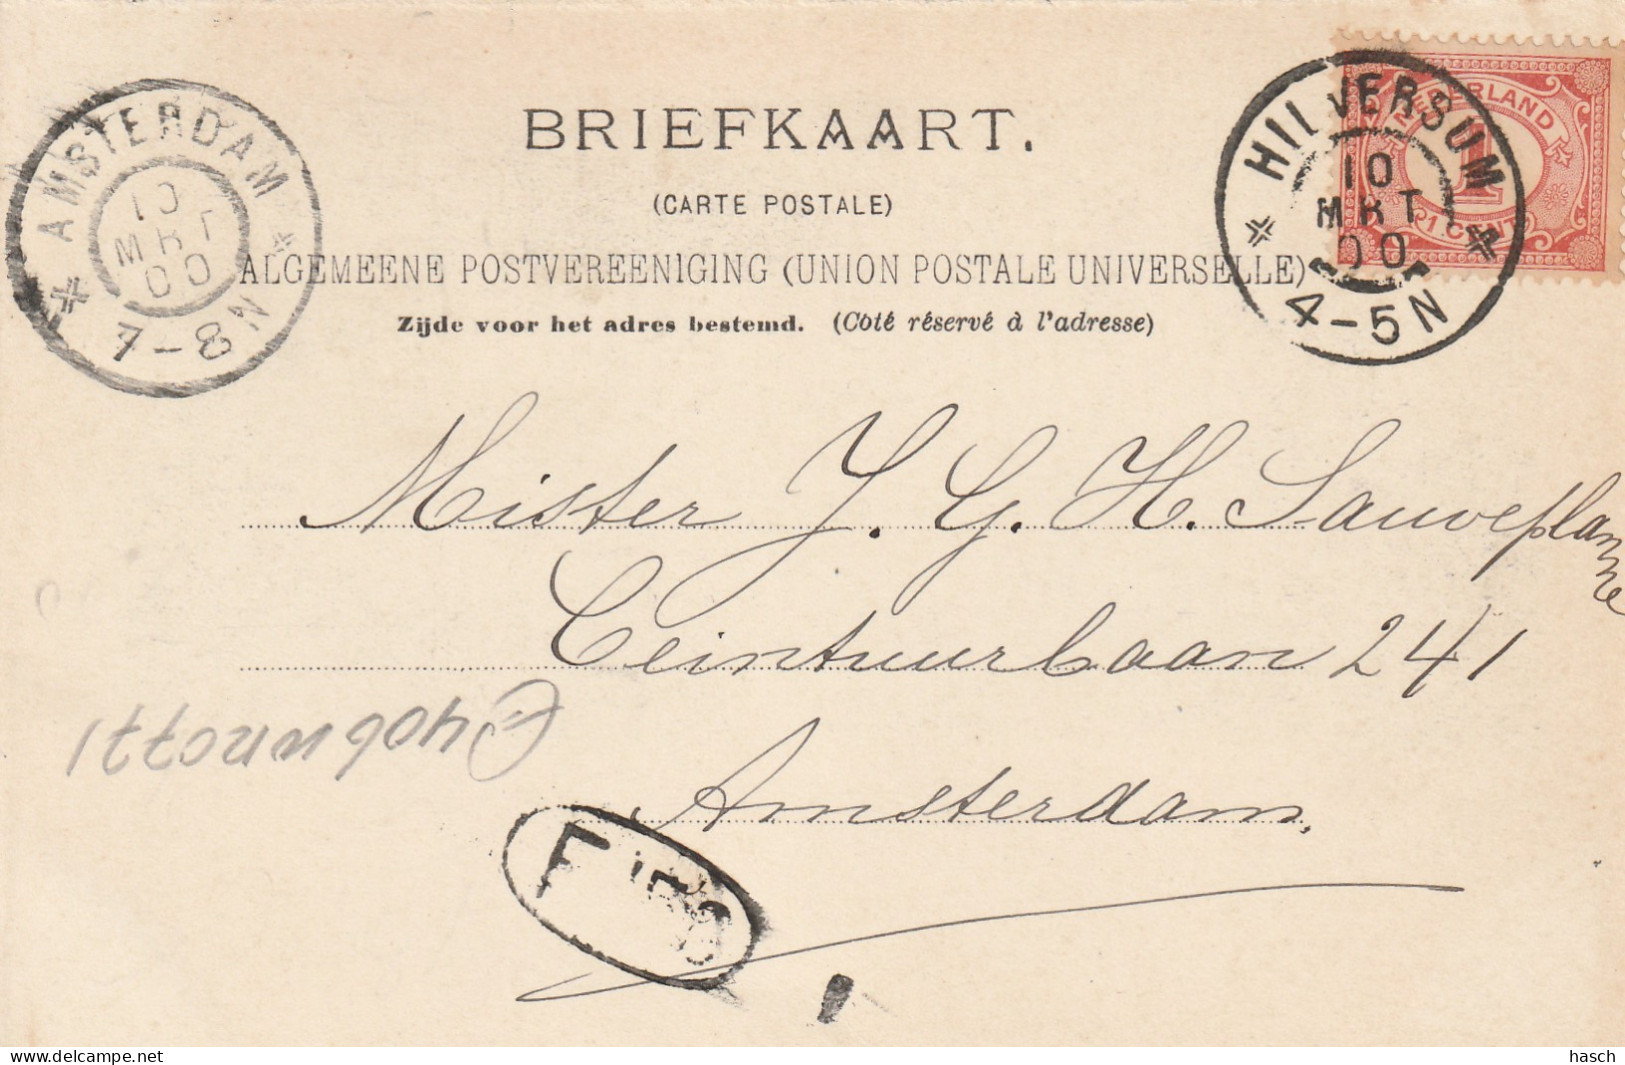 BRIEFKAART.
(CARTE POSTALE)
ALGEMEENE POSTVEREENIGING (UNION POSTALE UNIVERSELLE)
Zijde voor het adres bestemd. (Côté réservé à l'adresse)
AMSTERDAM
10
MRT
00
7-8N
HILVERSUM
10
MRT
00
4-5N
NEDERLAND
1
1 CENT
Mister J. G. H. Sauveplanne
Ceintuurbaan 241
Amsterdam.
Delcampe.net
hasch